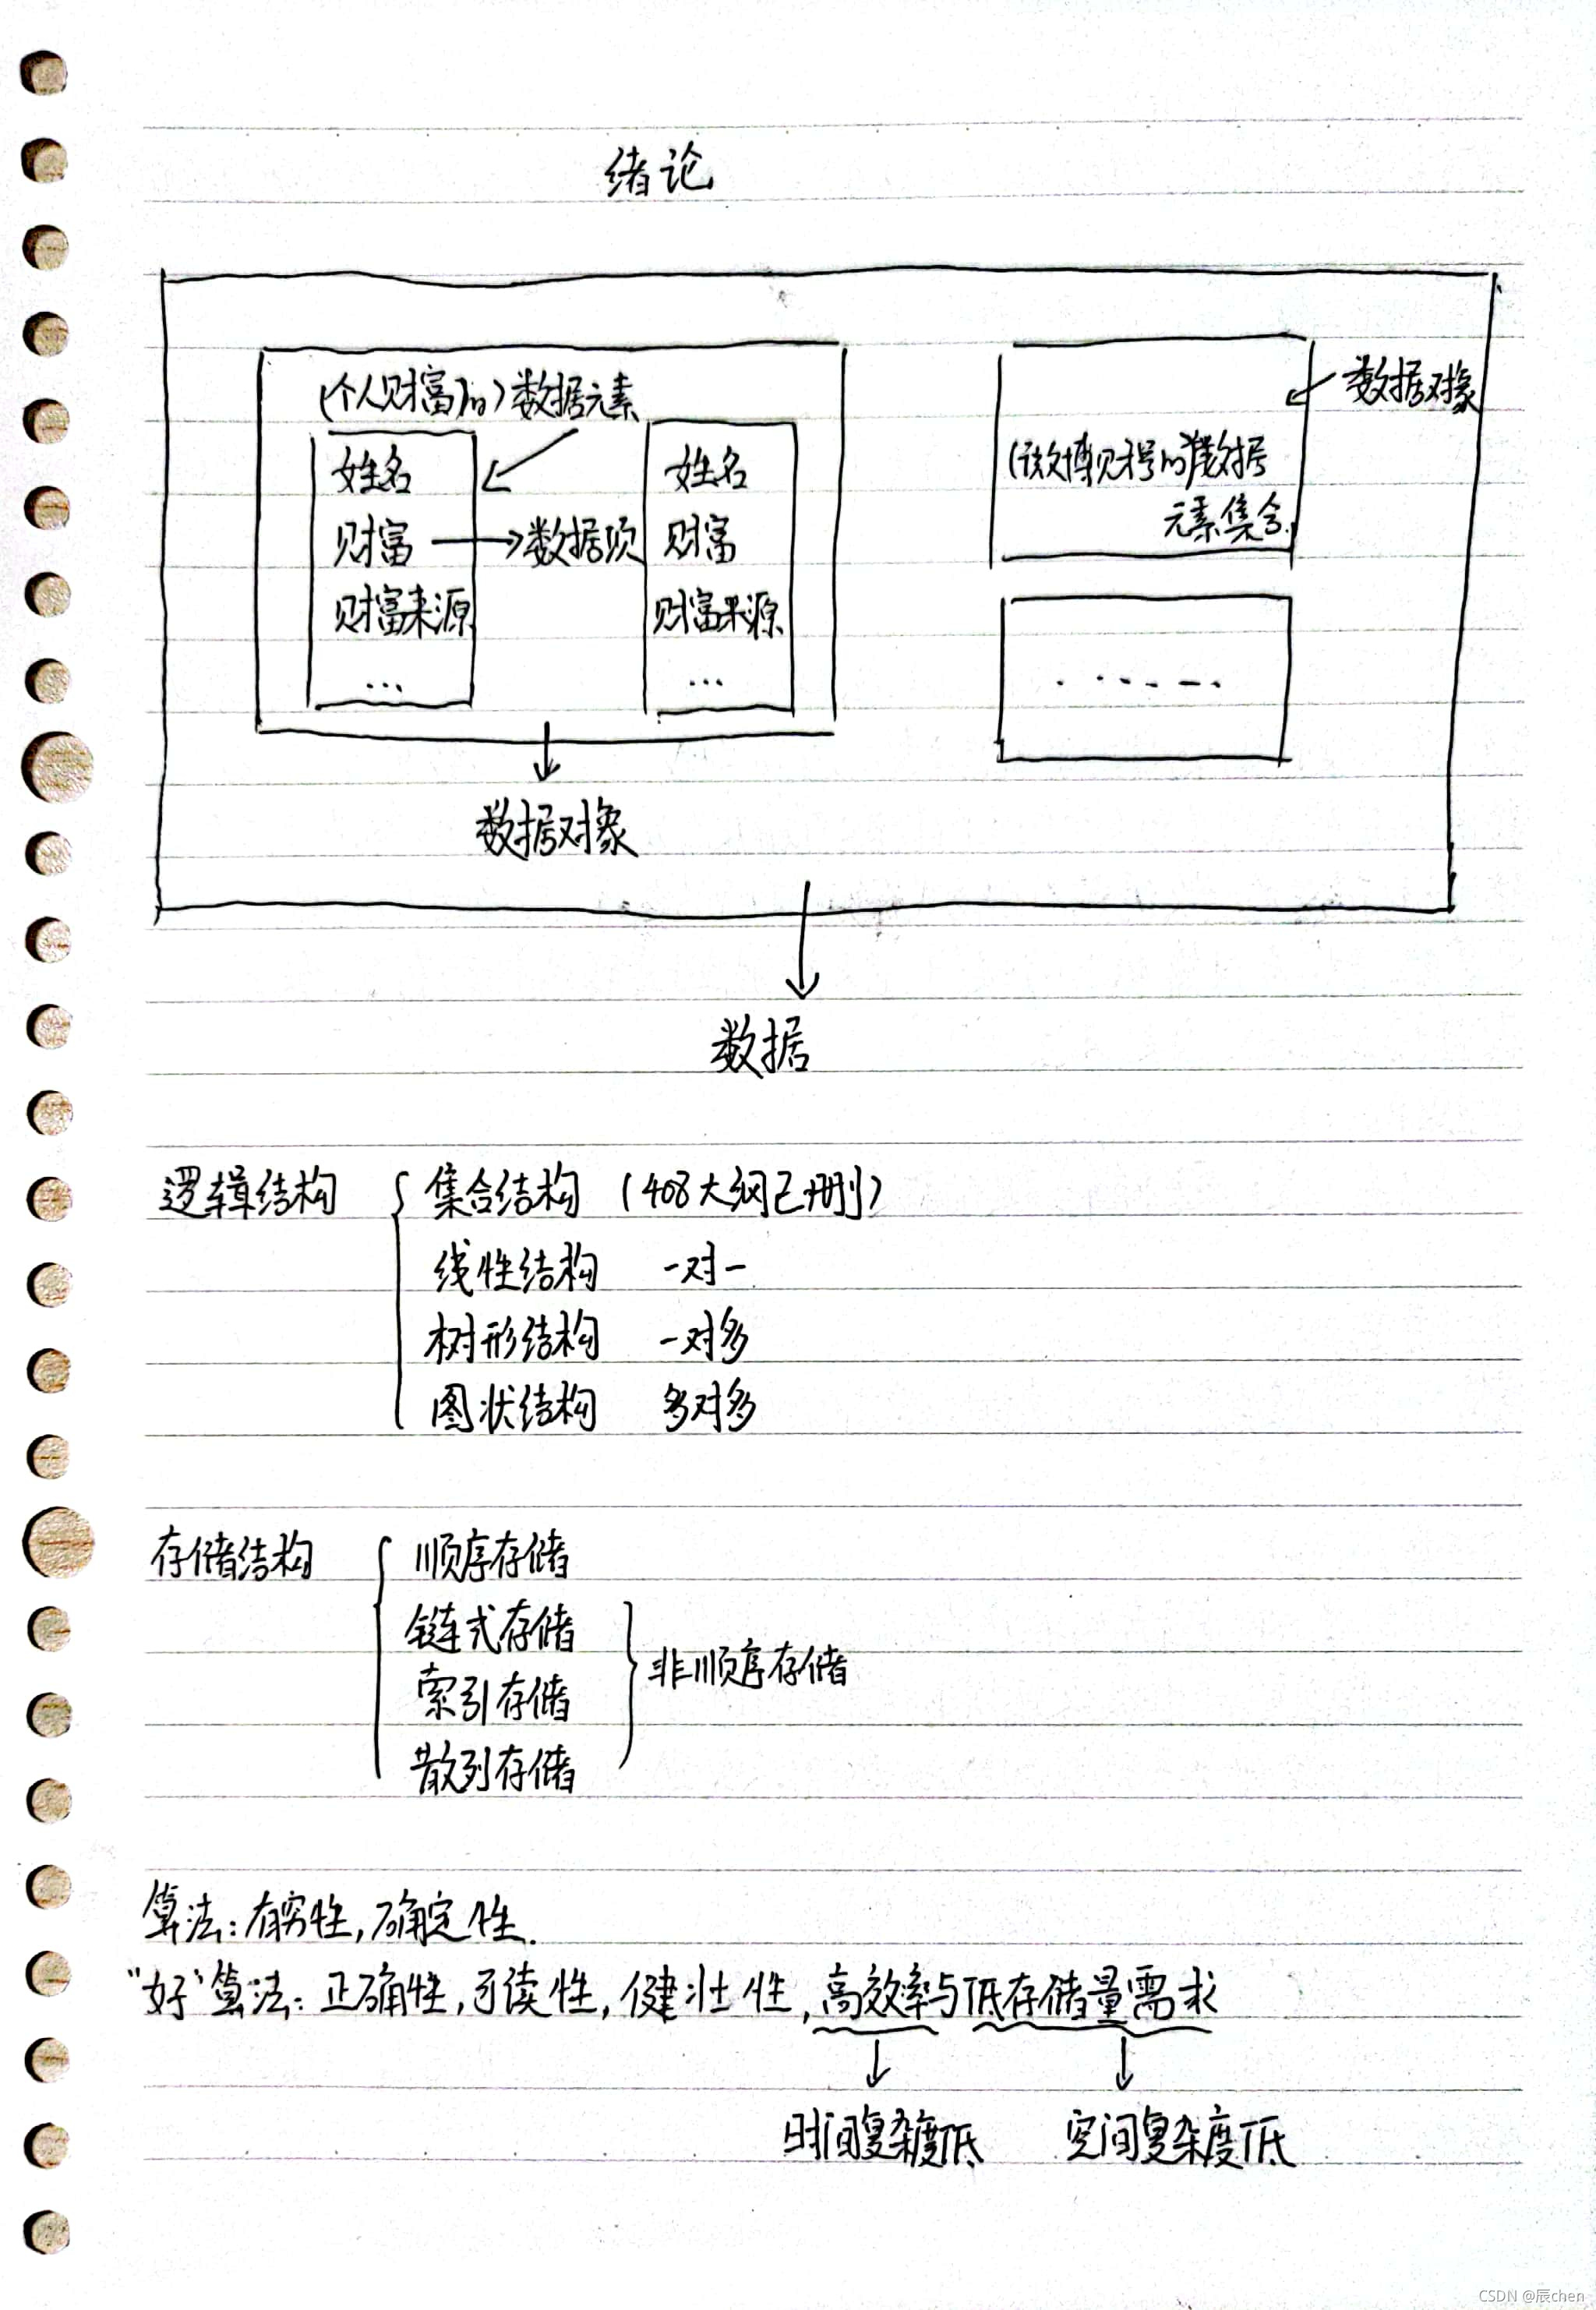 绪论
(个人财富的)数据元素
数据对象
姓名
姓名
财富
数据项
财富
财富来源
财富来源
...
...
数据
元素集合
......
数据对象
数据
逻辑结构 集合结构 (408大纲已删)
线性结构 一对一
树形结构 一对多
图状结构 多对多
存储结构 顺序存储
链式存储
索引存储
散列存储
非顺序存储
算法:有穷性,确定性.
"好"算法:正确性,可读性,健壮性,高效率与低存储量需求
时间复杂度低 空间复杂度低
CSDN @辰chen